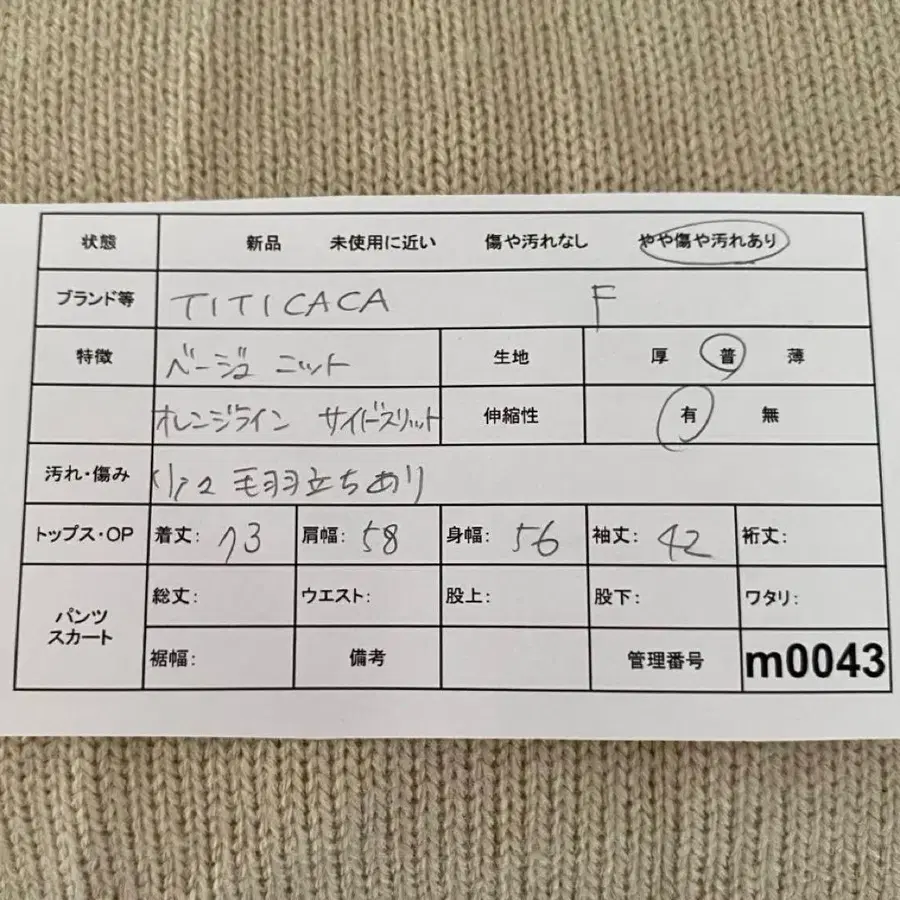 状態 新品 未使用に近い 傷や汚れなし やや傷や汚れあり
ブランド等 TITICACA F
特徴 ベージュ ニット 生地 厚 普 薄
オレンジライン サイドスリット 伸縮性 有 無
汚れ・傷み 毛羽立ちあり
トップス・OP 着丈: 73 肩幅: 58 身幅: 56 袖丈: 42 裄丈:
パンツ スカート 総丈: ウエスト: 股上: 股下: ワタリ:
裾幅: 備考 管理番号 m0043